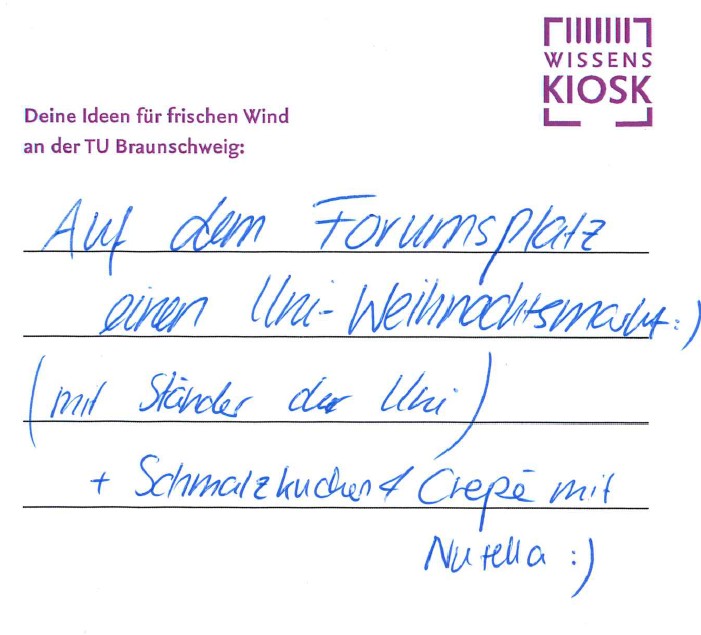 WISSENS
KIOSK
Deine Ideen für frischen Wind
an der TU Braunschweig:
Auf dem Forumsplatz
einen Uni-Weihnachtsmarkt :)
(mit Ständer der Uni)
+ Schmalzkuchen & Crepè mit
Nutella :)